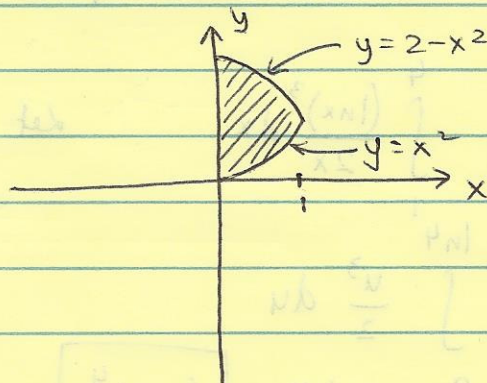 y
y = 2 - x²
y = x²
x
1